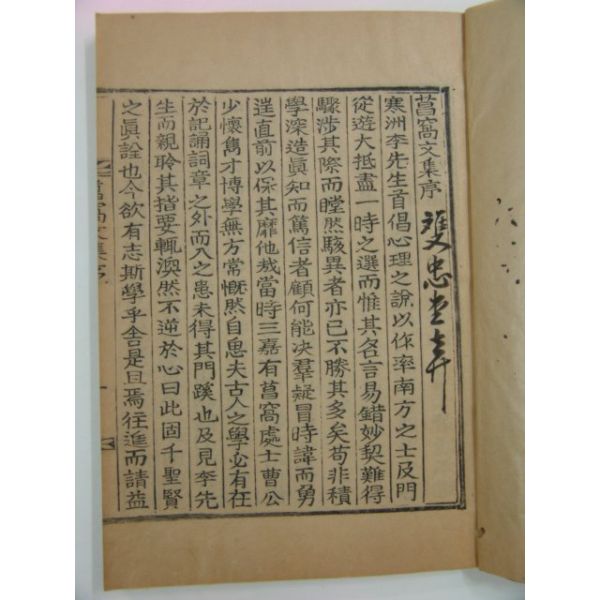 菖窩文集序
雙忠
寒洲李先生首倡心理之說以倡率南方之士及門
從遊大抵盡一時之選而惟其名言易錯妙契難得
驟涉其際而瞠然駭異者亦已不勝其多矣苟非積
學深造眞知而篤信者顧何能决羣疑冒時諱而勇
逞直前以保其靡他哉當時三嘉有菖窩處士曹公
少懷雋才博學無方常慨然自思夫古人之學必有在
於記誦詞章之外而入之患未得其門蹊也及見李先
生而親聆其指要輒渙然不逆於心曰此固千聖賢
之眞詮也今欲有志斯學乎舍是且焉往進而請益
菖窩文集序
一